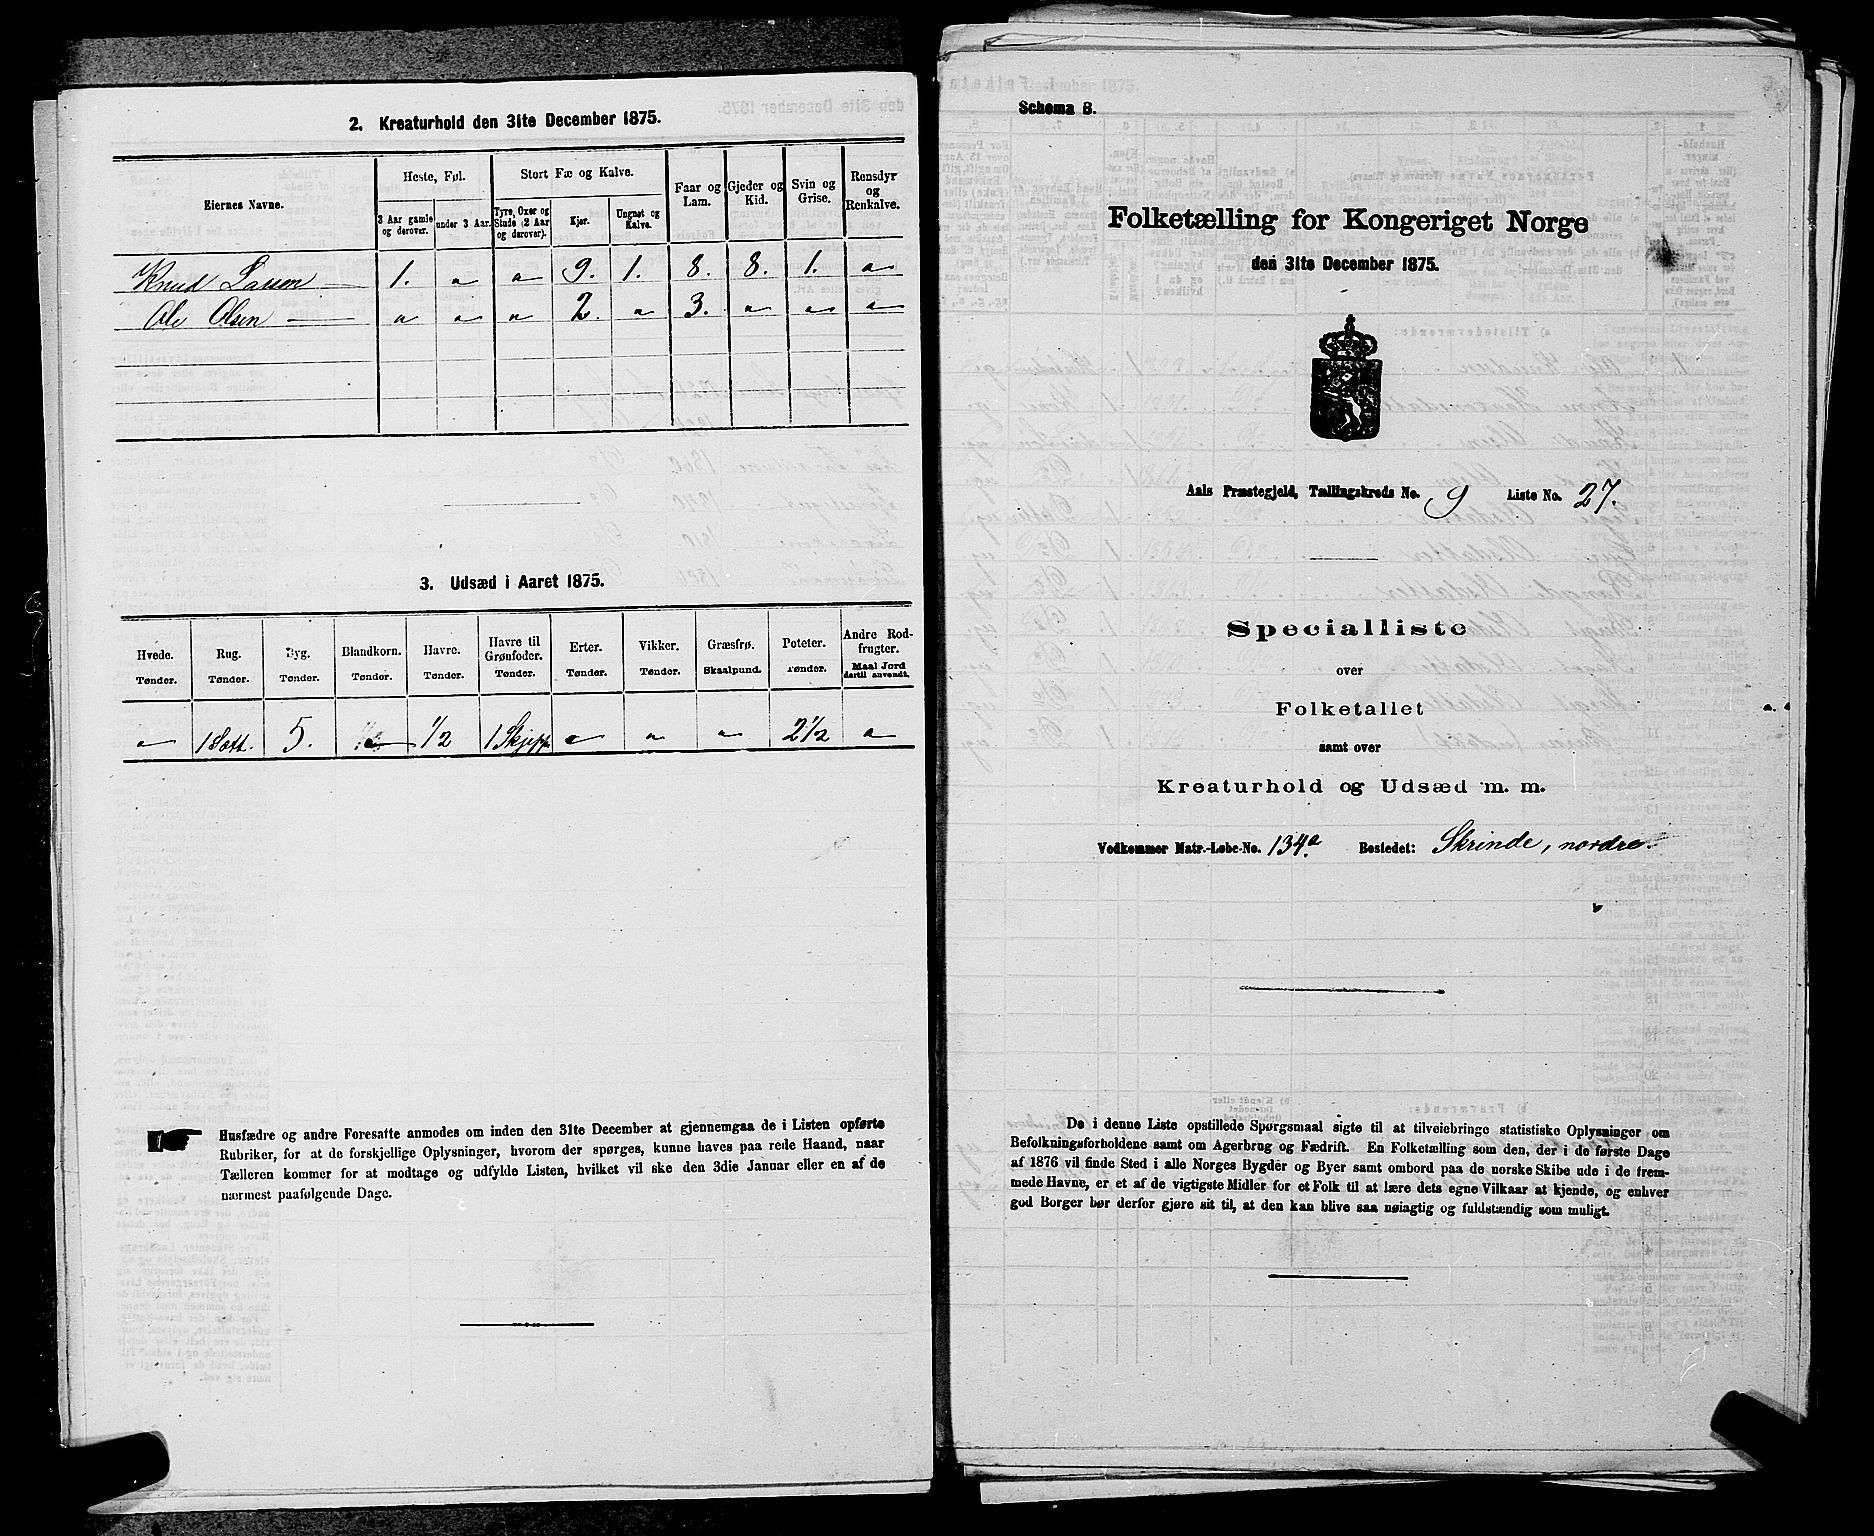 2. Kreaturhold den 31te December 1875.
Eiernes Navne. Heste, Føl. Stort Fæ og Kalve. Faar og Lam. Gjeder og Kid. Svin og Grise. Rensdyr og Renkalve.
3 Aar gamle og derover. under 3 Aar. Tyre, Oxer og Stude (2 Aar og derover). Kjør. Ungnøt og Kalve.
Knud Larsen 1. " " 9. 1. 8. 8. 1. "
Ole Olsen " " " 2. " 3. " " "
3. Udsæd i Aaret 1875.
Hvede. Rug. Byg. Blandkorn. Havre. Havre til Grønfoder. Erter. Vikker. Græsfrø. Poteter. Andre Rodfrugter.
Tønder. Tønder. Tønder. Tønder. Tønder. Tønder. Tønder. Tønder. Skaalpund. Tønder. Maal Jord dertil anvendt.
" 1 Sott. 5. " 1/2 1 Skjpp " " " 2 1/2 "
Husfædre og andre Foresatte anmodes om inden den 31te December at gjennemgaa de i Listen opførte
Rubriker, for at de forskjellige Oplysninger, hvorom der spørges, kunne haves paa rede Haand, naar
Tælleren kommer for at modtage og udfylde Listen, hvilket vil ske den 3die Januar eller en af de
nærmest paafølgende Dage.
Schema B.
Folketælling for Kongeriget Norge
den 31te December 1875.
Aals Præstegjeld, Tællingskreds No. 9 Liste No. 27.
Specialliste
over
Folketallet
samt over
Kreaturhold og Udsæd m. m.
Vedkommer Matr.-Løbe-No. 134a Bostedet: Skrinde, nordre.
De i denne Liste opstillede Spørgsmaal sigte til at tilveiebringe statistiske Oplysninger om
Befolkningsforholdene samt om Agerbrug og Fædrift. En Folketælling som den, der i de første Dage
af 1876 vil finde Sted i alle Norges Bygder og Byer samt ombord paa de norske Skibe ude i de frem-
mede Havne, er et af de vigtigste Midler for et Folk til at lære dets egne Vilkaar at kjende, og enhver
god Borger bør derfor gjøre sit til, at den kan blive saa nøiagtig og fuldstændig som muligt.